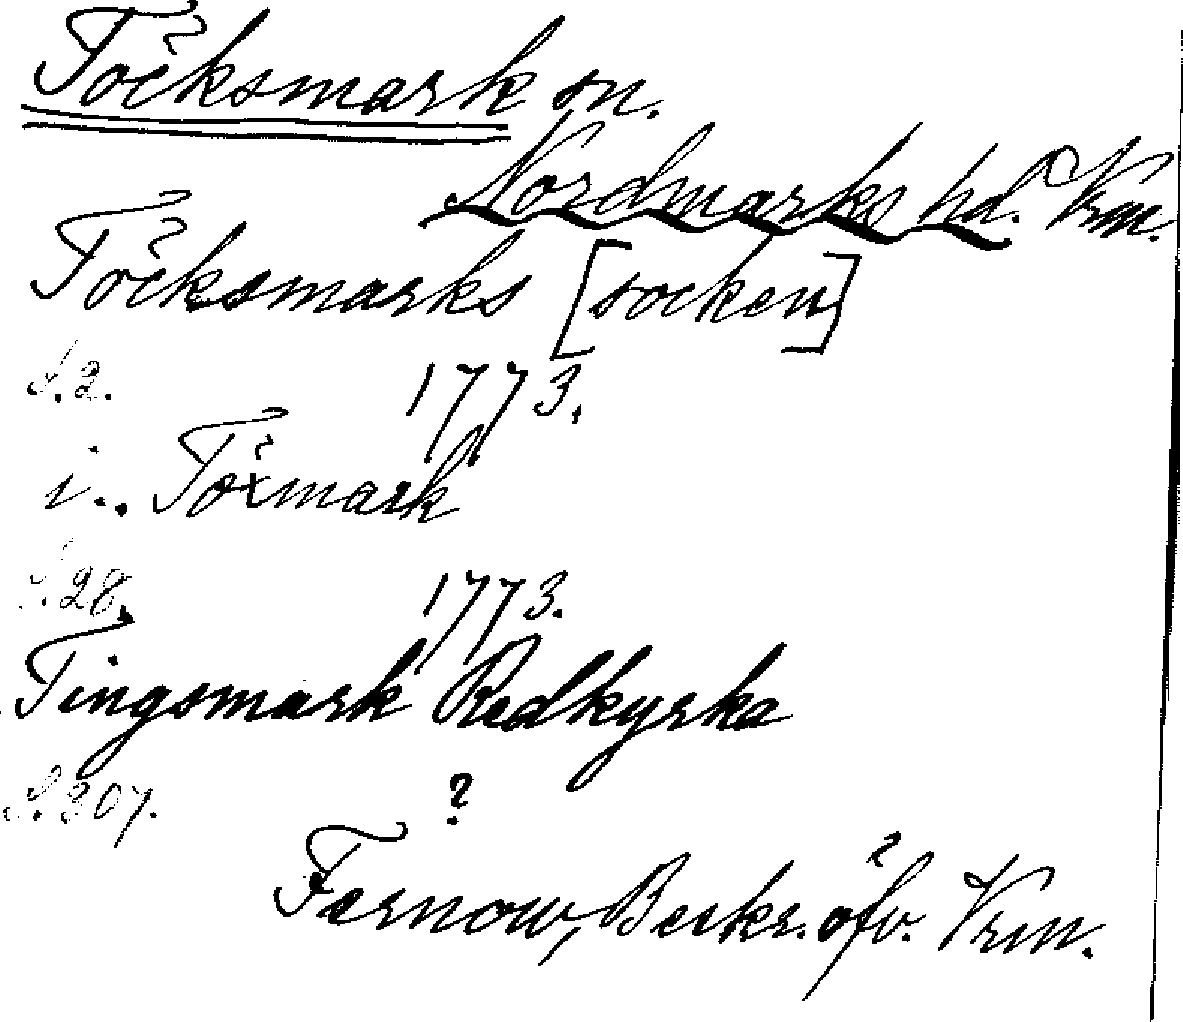 Töcksmark sn.
Nordmarks hd. Vrm.
Töcksmarks [socken]
S. 2. 1773.
i.. Töxmark
S. 28. 1773.
Tingsmark Redkyrka
S. 307. ?
Fernow, Beskr. öfv. Vrm.